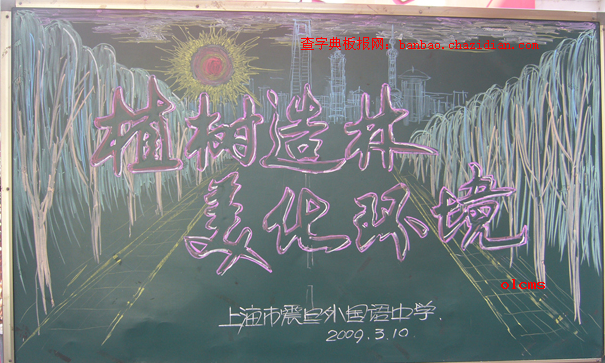 查字典板报网: banbao.chazidian.com
植树造林
美化环境
olcms
上海市震旦外国语中学.
2009.3.10